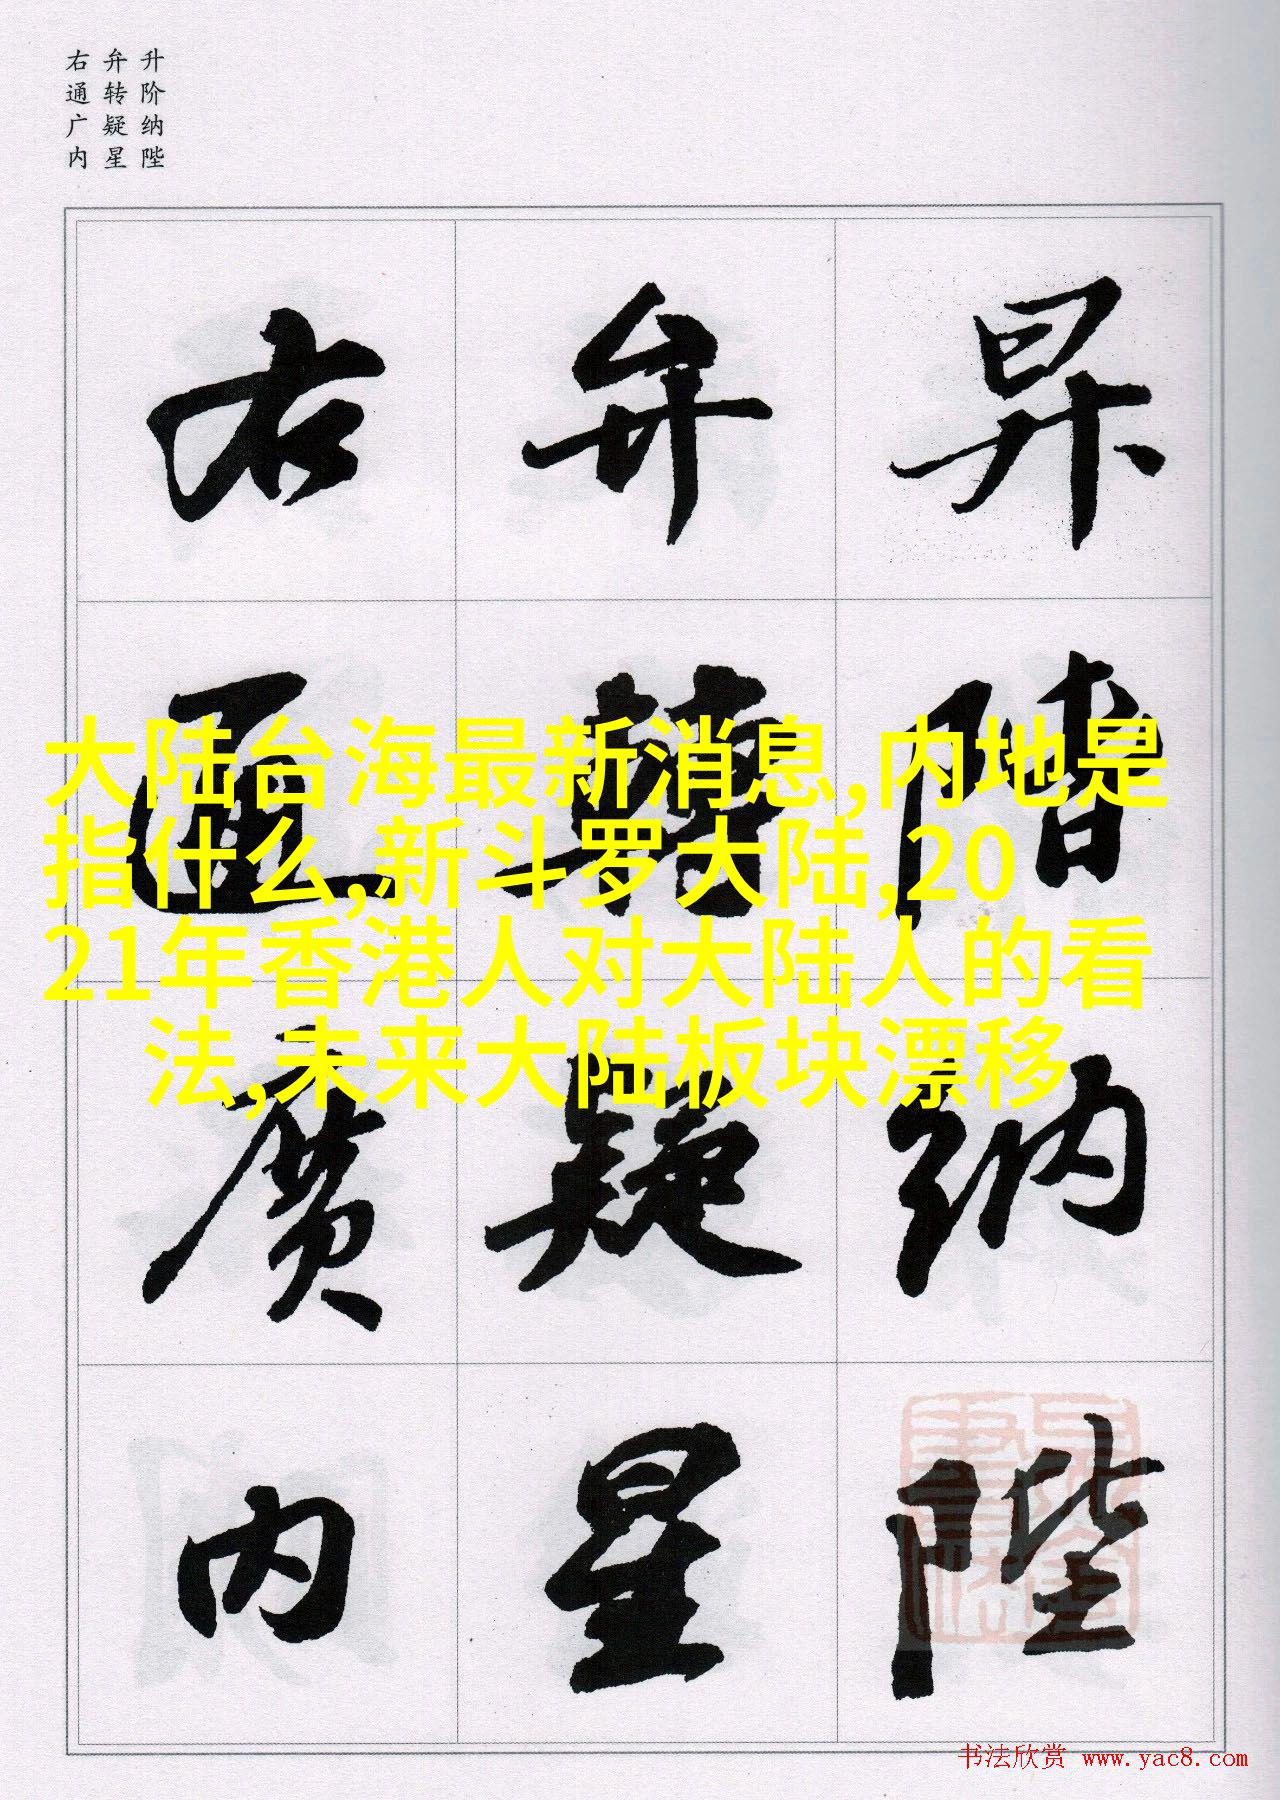 升阶纳陛
弁转疑星
右通广内
昇階納陛
弁轉疑星
右通廣內
大陆台海最新消息,内地是
指什么,新斗罗大陆,20
21年香港人对大陆人的看
法,未来大陆板块漂移
书法欣赏 www.yac8.com